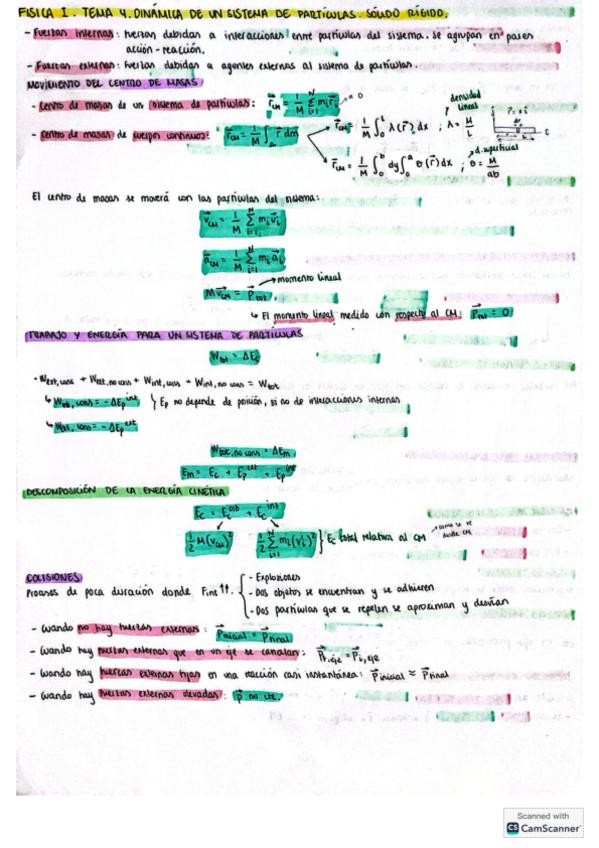 FISICA I. TEMA 4. DINÁMICA DE UN SISTEMA DE PARTÍCULAS. SÓLIDO RÍGIDO.
- Fuerzas internas: fuerzas debidas a interacciones entre partículas del sistema. Se agrupan en pares
acción-reacción.
- Fuerzas externas: fuerzas debidas a agentes externos al sistema de partículas.
MOVIMIENTO DEL CENTRO DE MASAS
- Centro de masas de un sistema de partículas: r⃗CM = 1/M Σ(i=1→N) mi r⃗i
- Centro de masas de cuerpos continuos: r⃗CM = 1/M ∫ r⃗ dm
r⃗CM = 1/M ∫₀ᴸ λ(r⃗) dx ; λ = M/L
densidad lineal
r⃗CM = 1/M ∫₀ᵇ dy ∫₀ᵃ σ(r⃗) dx ; σ = M/ab
d. superficial
El centro de masas se moverá con las partículas del sistema:
v⃗CM = 1/M Σ(i=1→N) mi v⃗i
a⃗CM = 1/M Σ(i=1→N) mi a⃗i
M v⃗CM = P⃗tot → momento lineal
↳ El momento lineal medido con respecto al CM: P⃗tot = 0
TRABAJO Y ENERGÍA PARA UN SISTEMA DE PARTÍCULAS
Wtot = ΔEc
· Wext,cons + Wext,no cons + Wint,cons + Wint,no cons = Wtot
↳ Wint,cons = -ΔEp^int } Ep no depende de posición, si no de interacciones internas
↳ Wext,cons = -ΔEp^ext
Wtot,no cons = ΔEm
Em = Ec + Ep^ext + Ep^int
DESCOMPOSICIÓN DE LA ENERGÍA CINÉTICA
Ec = Ec^orb + Ec^int
1/2 M(vCM)² 1/2 Σ(i=1→N) mi(vi')² } Ec total relativa al CM → como se ve desde CM
COLISIONES
Procesos de poca duración donde Fint ↑↑.
- Explosiones
- Dos objetos se encuentran y se adhieren
- Dos partículas que se repelen se aproximan y desvían
- Cuando no hay fuerzas externas: P⃗inicial = P⃗final
- Cuando hay fuerzas externas que en un eje se cancelan: P⃗f,eje = P⃗i,eje
- Cuando hay fuerzas externas fijas en una reacción casi instantánea: P⃗inicial ≈ P⃗final
- Cuando hay fuerzas externas elevadas: p⃗ no cte.
Scanned with
CS CamScanner